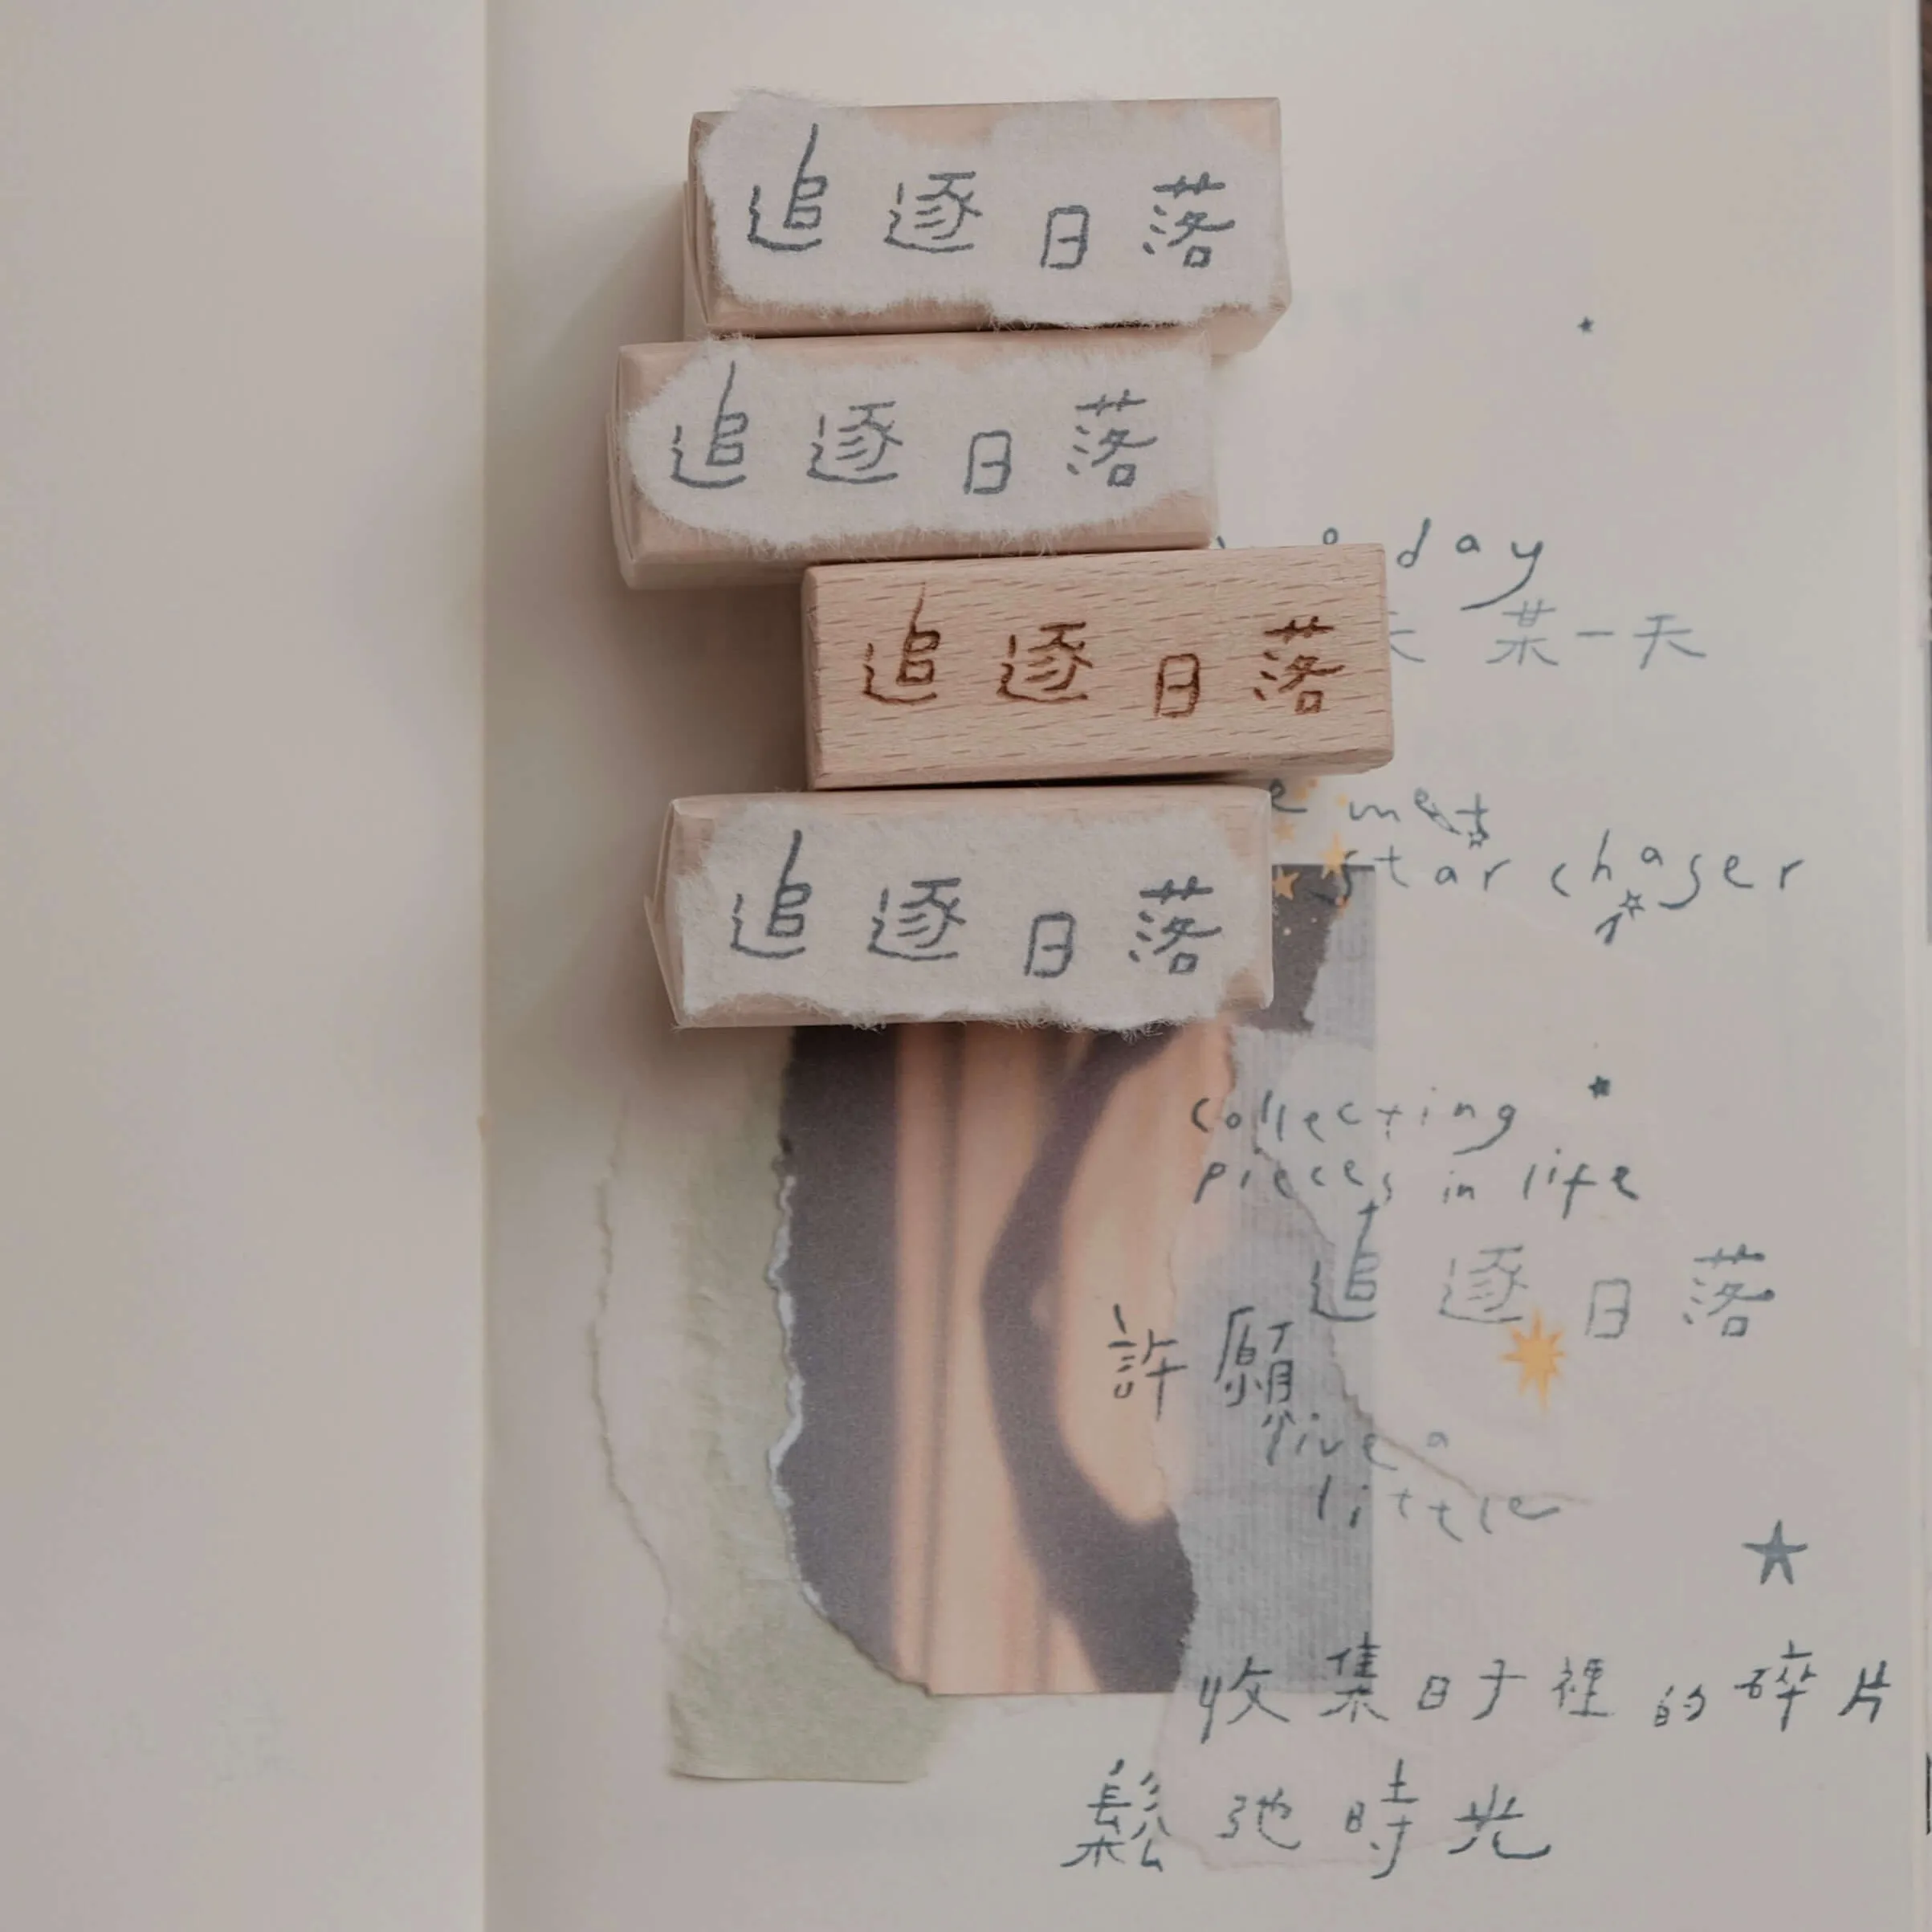 追逐日落
追逐日落
追逐日落
追逐日落
day
某一天
met
star chaser
collecting
pieces in life
追逐日落
許願
live a
little
收集日子裡的碎片
鬆弛時光